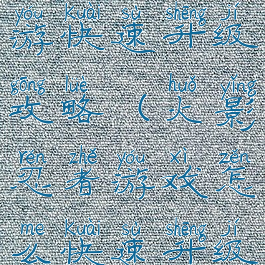 yóu kuài sù shēng jí
游快速升级
gōng lüè huǒ yǐng
攻略（火影
rěn zhě yóu xì zěn
忍者游戏怎
me kuài sù shēng jí
么快速升级